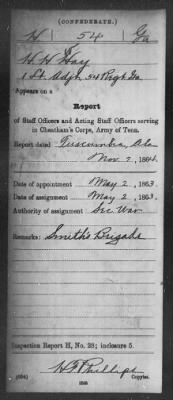 (CONFEDERATE.)
H 54 Ga
H. H. Hay
1 Lt. Adjt. 54 Regt Ga
Appears on a
Report
of Staff Officers and Acting Staff Officers serving
in Cheatham's Corps, Army of Tenn.
Report dated Tuscumbia, Ala
Nov. 7, 1864.
Date of appointment May 2, 1863.
Date of assignment May 2, 1863.
Authority of assignment Sec. War.
Remarks: Smith's Brigade
Inspection Report H, No. 28; inclosure 5.
Phillips
(634) Copyist.